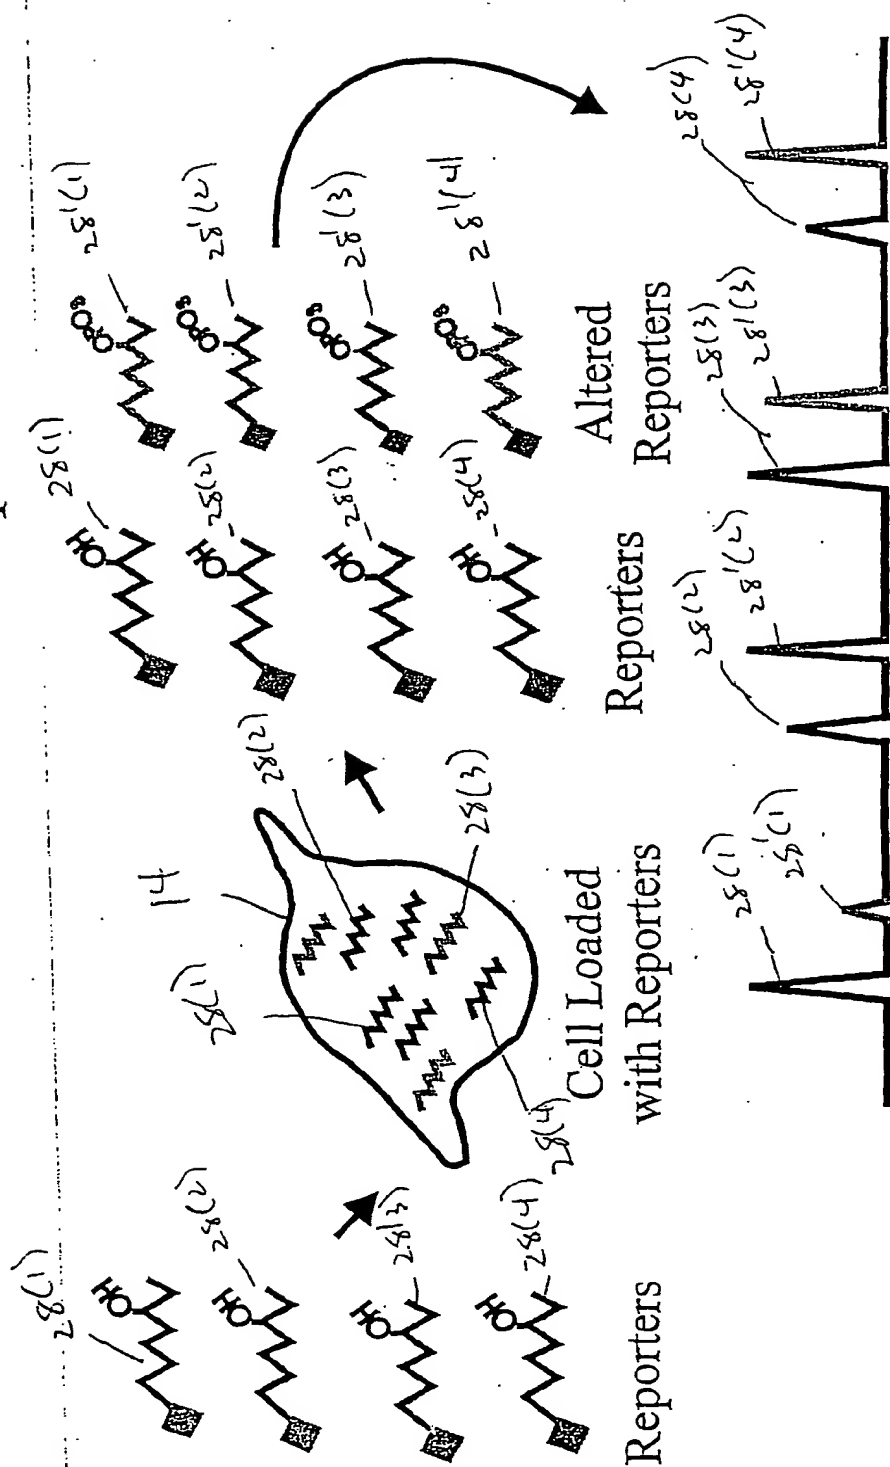 28(1)
28(2)
28(3)
28(4)
OH
OH
OH
OH
Reporters
14
28(1)
28(2)
28(3)
28(4)
Cell Loaded
with Reporters
28(1)
28(2)
28(3)
28(4)
OH
OH
OH
OH
Reporters
28'(1)
28'(2)
28'(3)
28'(4)
Altered
Reporters
28(1)
28'(1)
28(2)
28'(2)
28(3)
28'(3)
28(4)
28'(4)